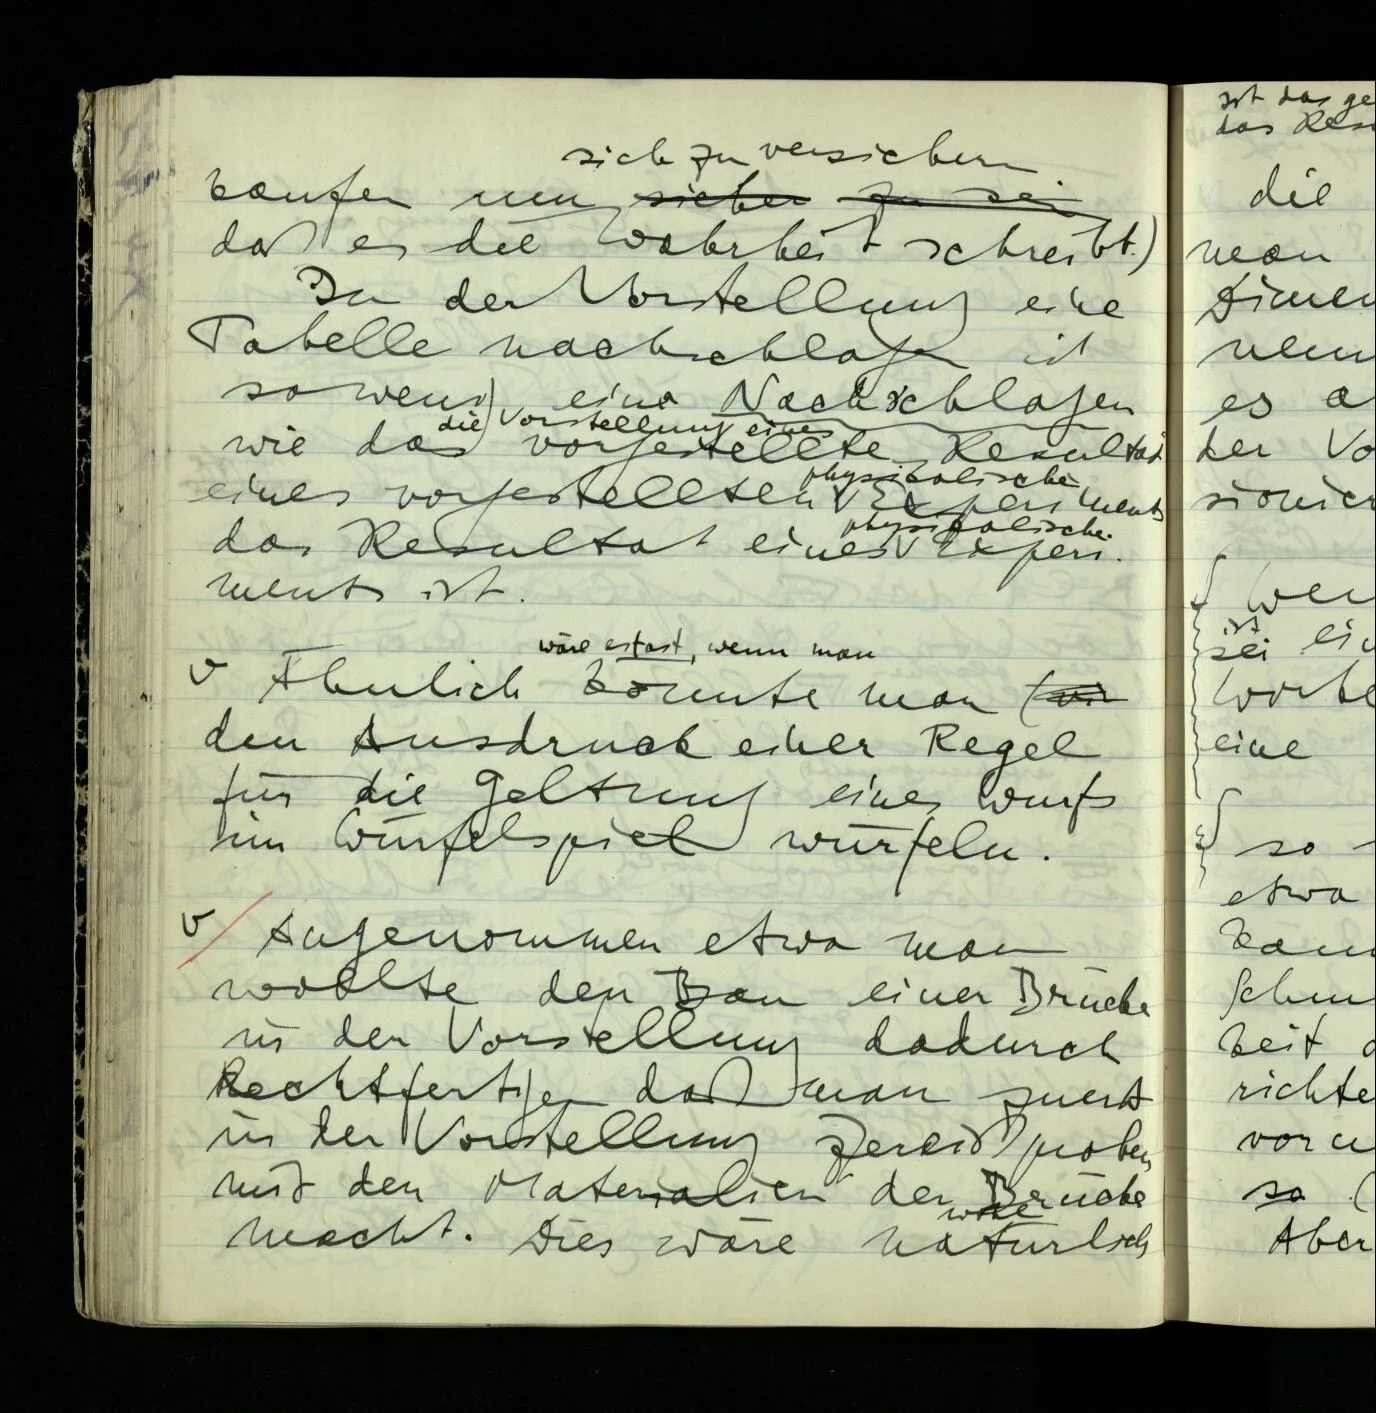 sich zu versichern
kaufen um sicher zu sein
daß es die Wahrheit schreibt.)
In der Vorstellung eine
Tabelle nachschlagen ist
sowenig eine Nachschlagen
die Vorstellung eines
wie das vorgestellte Resultat
physikalische
eines vorgestellten Experiments
physikalische
das Resultat eines Experi-
ments ist.
wäre es fast, wenn man
v Ähnlich könnte man
den Ausdruck einer Regel
für die Geltung eines Wurfs
im Würfelspiel würfeln.
v Angenommen etwa man
wollte den Bau einer Brücke
in der Vorstellung dadurch
Rechtfertigen daß man zuerst
in der Vorstellung Zereißproben
mit den Materialien der Brücke
wäre
macht. Dies wäre natürlich
ist das ge
das Resu
die
man
Dimen
es a
der Vo
sionier
Wen
ist
sei ein
Worte
eine
so
etwa
kann
Schm
keit
richte
vor u
so (
Aber